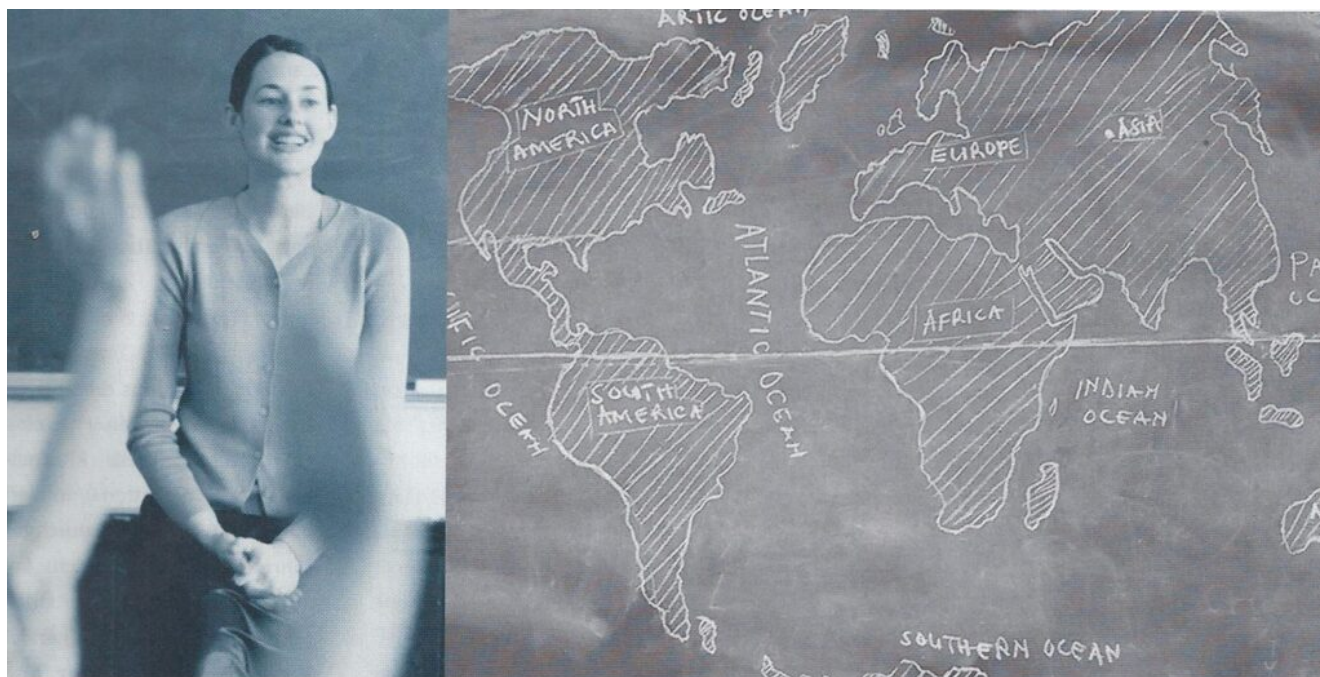 ARTIC OCEAN
NORTH
AMERICA
EUROPE
ASIA
ATLANTIC
OCEAN
PA
OC
AFRICA
IFIC
OCEAN
SOUTH
AMERICA
INDIAN
OCEAN
A
SOUTHERN OCEAN